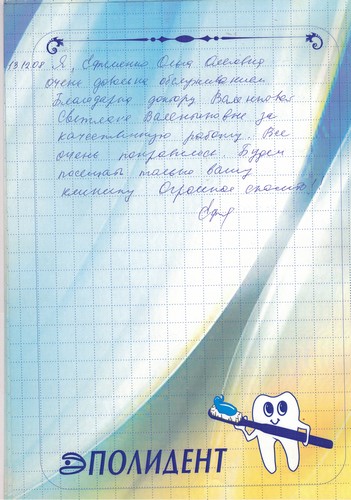 13.12.08 Я, Ефименко Ольга Олеговна
очень довольна обслуживанием.
Благодарна доктору Валентиновой
Светлане Валентиновне за
качественную работу. Все
очень понравилось. Будем
посещать только вашу
клинику Огромное спасибо!
ПОЛИДЕНТ